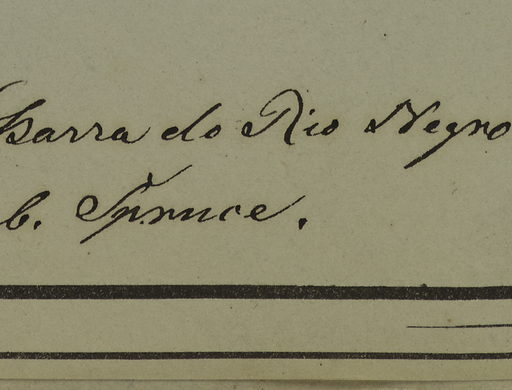 Barra do Rio Negro
b. Spruce.